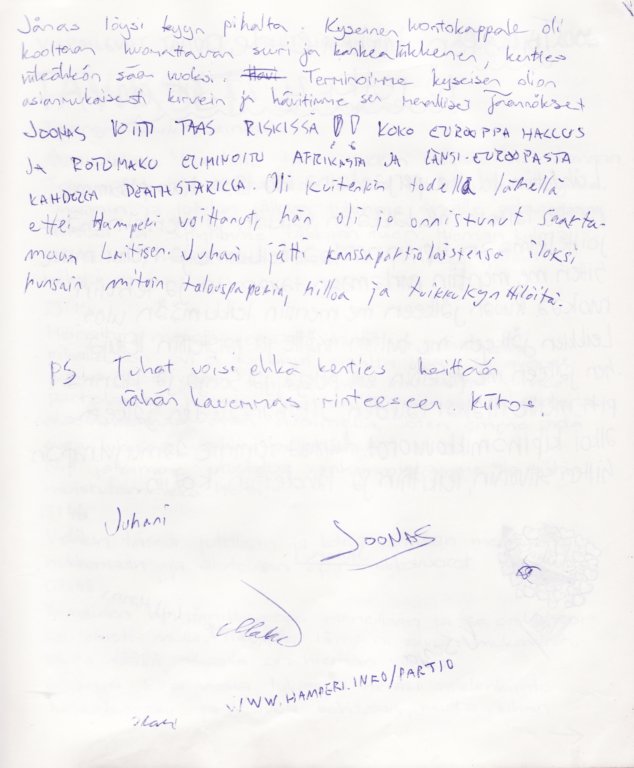 Jånas löysi kyyn pihalta. Kyseinen luontokappale oli
kooltaan huomattavan suuri ja kankealiikkeinen, kenties
viileähkön sään vuoksi. Terminoimme kyseisen olion
asianmukaisesti kirvein ja hävitimme sen maalliset jäännökset
JOONAS VOITTI TAAS RISKISSÄ !! KOKO EUROOPPA HALLUS
JA ROTUMAKU ELIMINOITU AFRIKASTA JA LÄNSI-EUROOPASTA
KAHDELLA DEATHSTARILLA. Oli kuitenkin todella lähellä
ettei Hamperi voittanut, hän oli jo onnistunut saarta-
maan Laitisen. Juhani jätti kanssapartiolaistensa iloksi
runsain mitoin talouspaperia, hilloa ja tuikkukynttilöitä.
PS Tuhat voisi ehkä kenties heittää
vähän kauemmas rinteeseen. Kiitos.
Juhani
JOONAS
WWW.HAMPERI.INFO/PARTIO